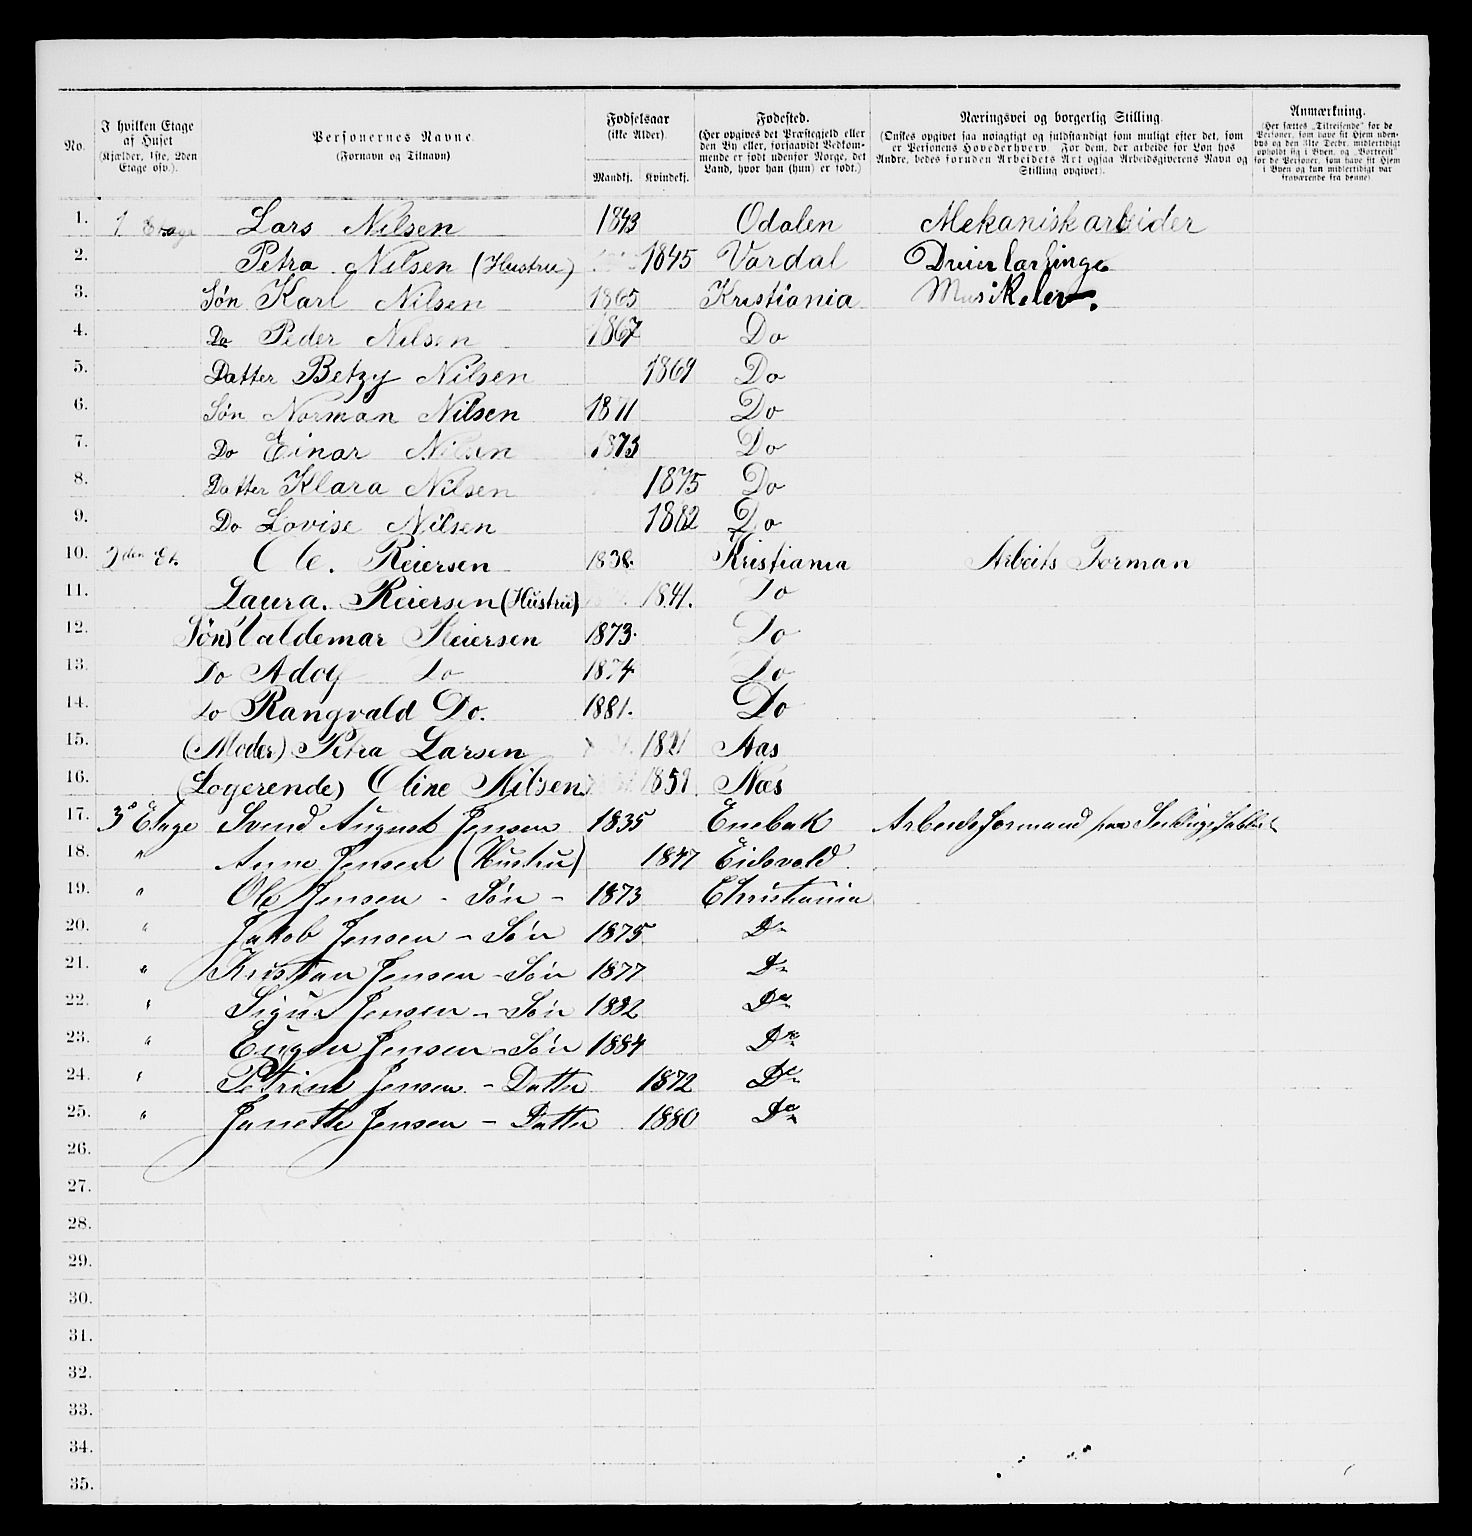 No. | I hvilken Etage af Huset (Kjælder, 1ste, 2den Etage osv.). | Personernes Navne. (Fornavn og Tilnavn) | Fødselsaar (ikke Alder). Mandkj. | Kvindekj. | Fødested. (Her opgives det Præstegjeld eller den By eller, forsaavidt Vedkommende er født udenfor Norge, det Land, hvor han (hun) er født.) | Næringsvei og borgerlig Stilling. (Ønskes opgivet saa nøiagtigt og fuldstændigt som muligt efter det, som er Personens Hovederhverv. For dem, der arbeide for Løn hos Andre, bedes foruden Arbeidets Art ogsaa Arbeidsgiverens Navn og Stilling opgivet). | Anmærkning. (Her sættes „Tilreisende" for de Personer, som have sit Hjem udenbys og den 31te Decbr. midlertidigt opholdt sig i Byen, og „Bortreist" for de Personer, som have sit Hjem i Byen og kun midlertidigt var fraværende fra denne)
1. 1 Etage Lars Nilsen 1843 Odalen Mekanisk arbeider
2. Petra Nilsen (Hustru) 1845 Vardal Dreierlærlinge
3. Søn Karl Nilsen 1865 Kristiania Musikelev.
4. Do Peder Nilsen 1867 Do
5. Datter Betzy Nilsen 1869 Do
6. Søn Norman Nilsen 1871 Do
7. Do Einar Nilsen 1873 Do
8. Datter Klara Nilsen 1875 Do
9. Do Lovise Nilsen 1882 Do
10. 2den Et. Ole. Reiersen 1838. Kristiania Arbeits Forman
11. Laura. Reiersen (Hustru) 1841. Do
12. Søn Valdemar Reiersen 1873. Do
13. Do Adolf Do 1874 Do
14. Do Rangvald Do. 1881. Do
15. (Moder) Petra Larsen 1821 Aas
16. (Logerende) Oline Nilsen 1859 Næs
17. 3de Etage Svend August Jensen 1835 Enebak Arbeidsformand paa
18. " Anne Jensen (Hustru) 1847 Eidsvold.
19. " Ole Jensen - Søn - 1873 Christiania
20. " Jakob Jensen - Søn 1875 Do
21. " Kristian Jensen - Søn 1877 Do
22. " Sigur Jensen - Søn 1882 Do
23. " Eugen Jensen - Søn 1884 Do
24. " Petrine Jensen - Datter 1872 Do
25. " Janette Jensen - Datter 1880 Do
26.
27.
28.
29.
30.
31.
32.
33.
34.
35.